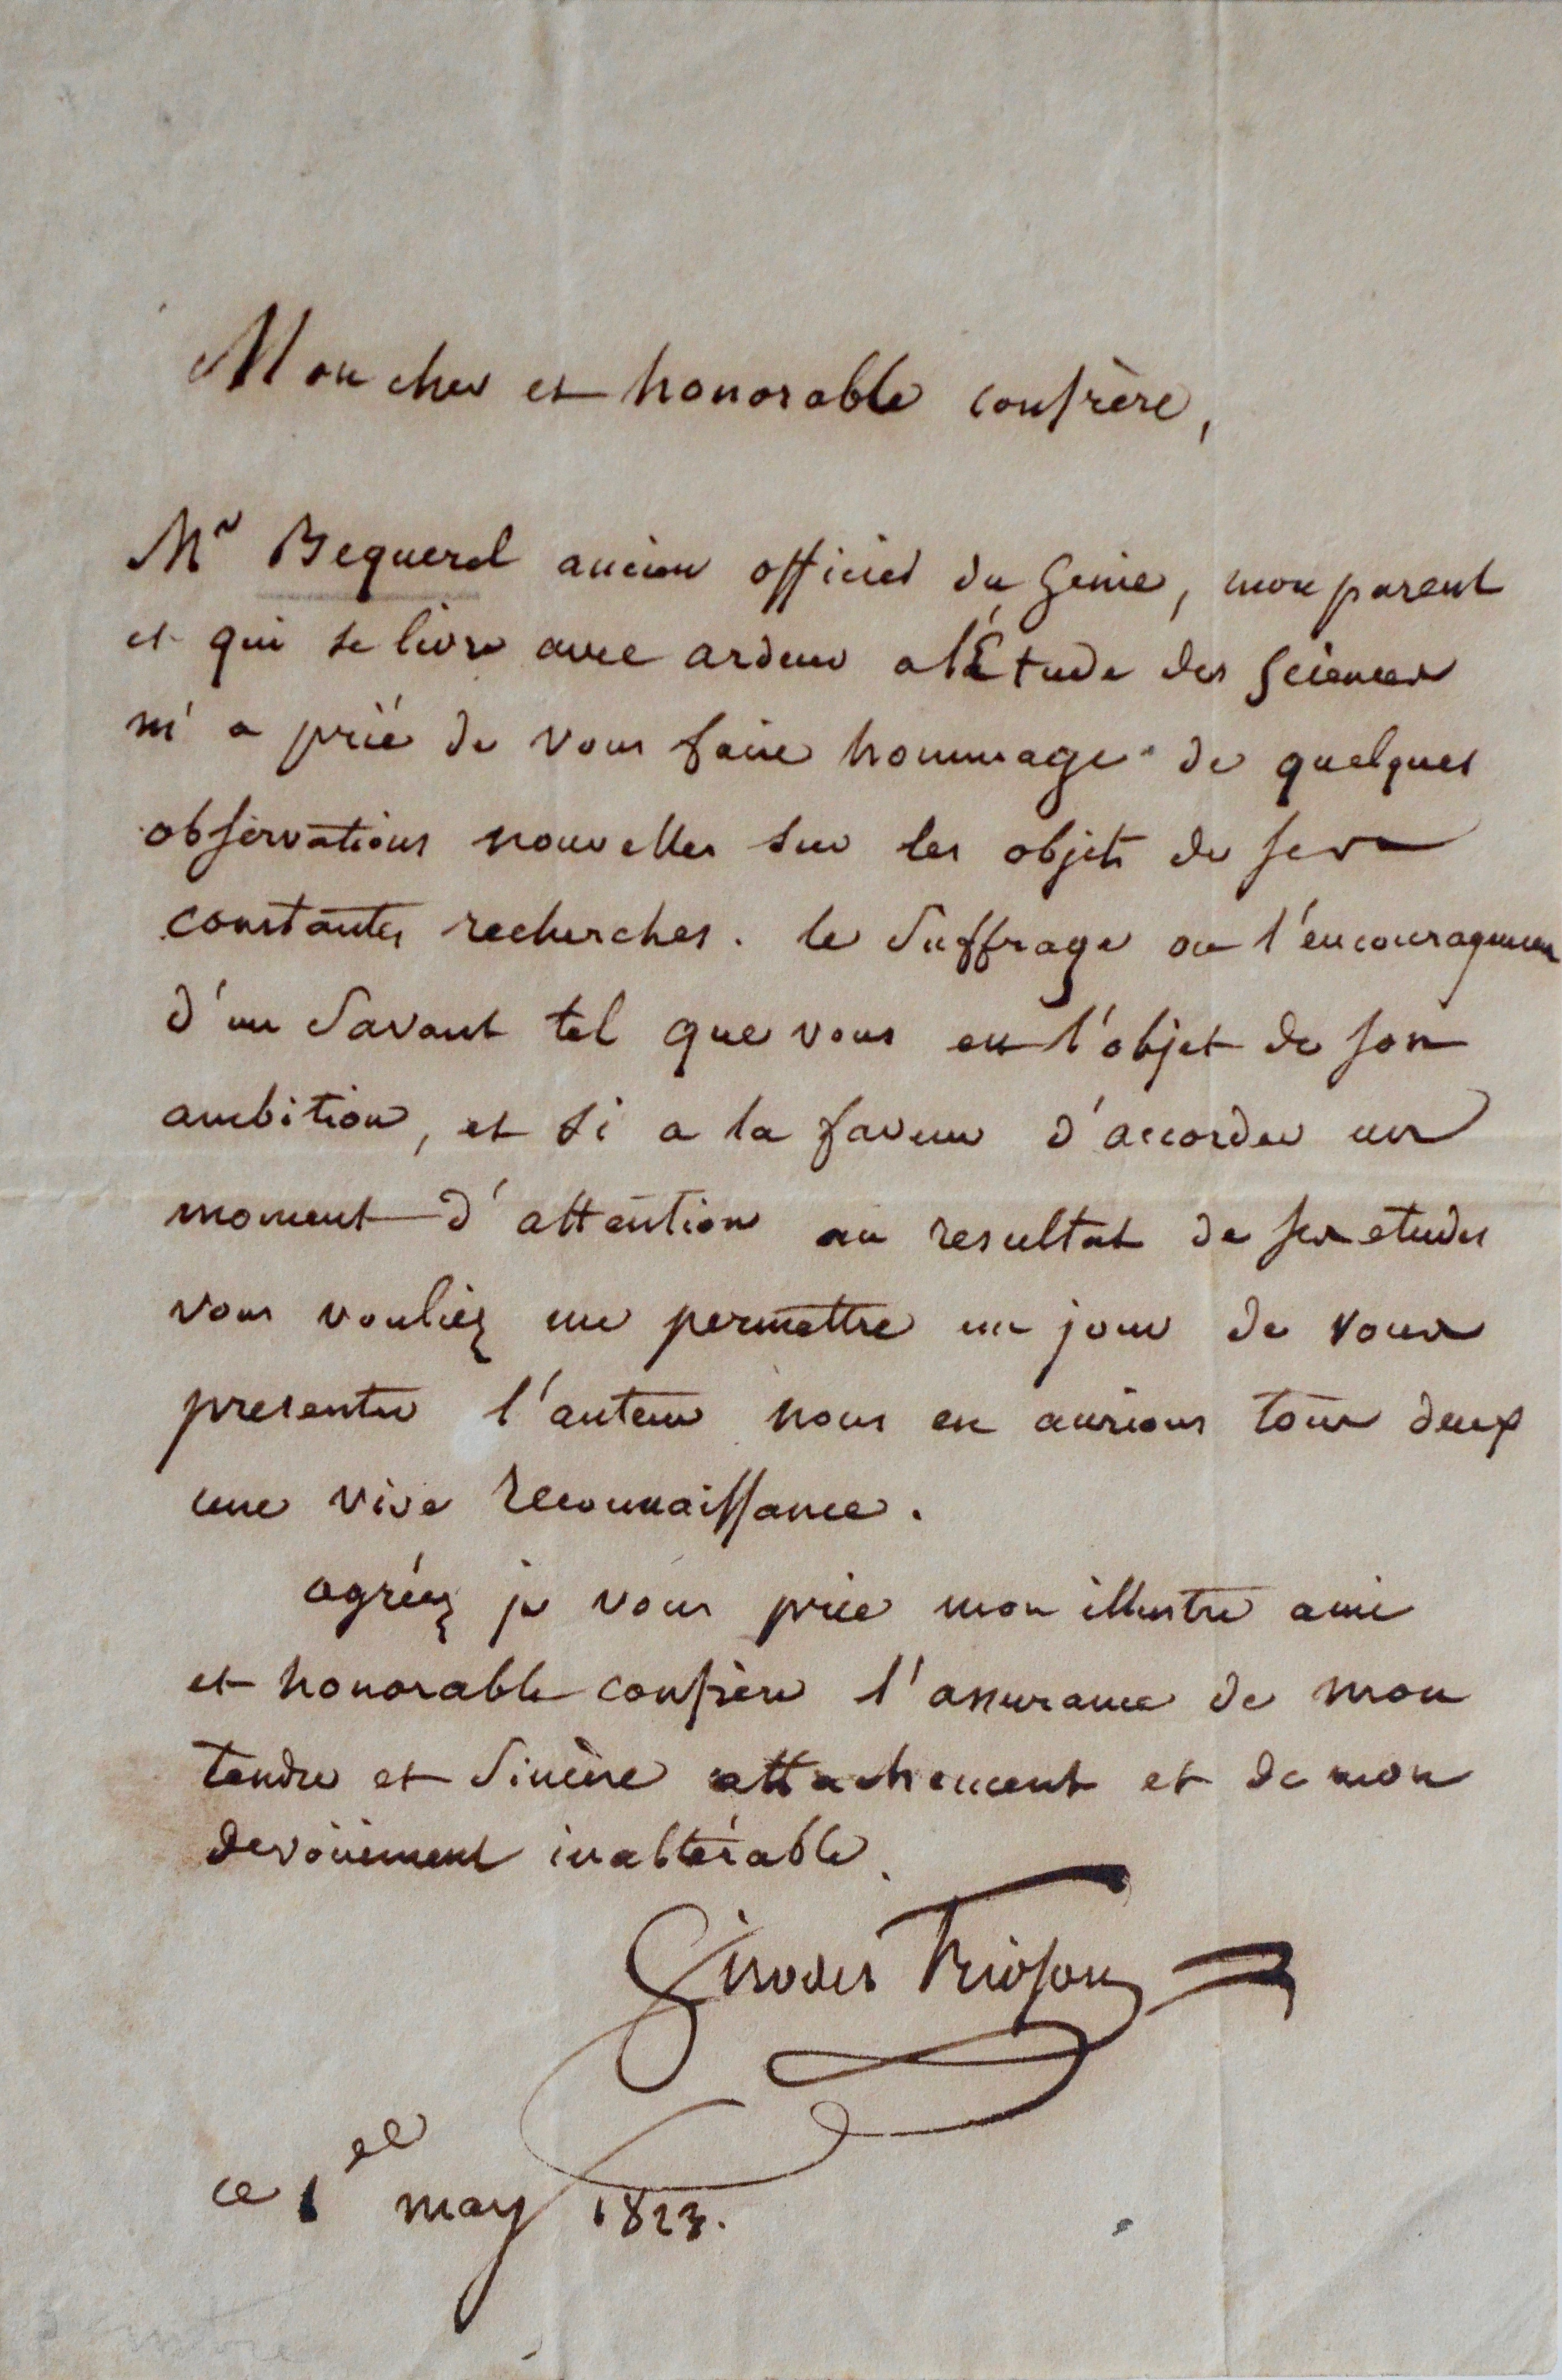 Mon cher et honorable confrère,
Mr Bequerel ancien officier du Genie, mon parent
et qui se livre avec ardeur a l'Étude des Sciences
m'a prié de vous faire hommage de quelques
observations nouvelles sur les objets de ses
constantes recherches. le Suffrage ou l'encouragemen
d'un Savant tel que vous est l'objet de son
ambition, et si a la faveur d'accorder un
moment d'attention au resultat de ses etudes
vous vouliez me permettre un jour de vous
presenter l'auteur nous en aurions tous deux
une vive reconnaissance.
agréez je vous prie mon illustre ami
et honorable confrère l'assurance de mon
tendre et Sincère attachement et de mon
devoüement inaltérable.
Girodet Trioson
ce 1er may 1823.